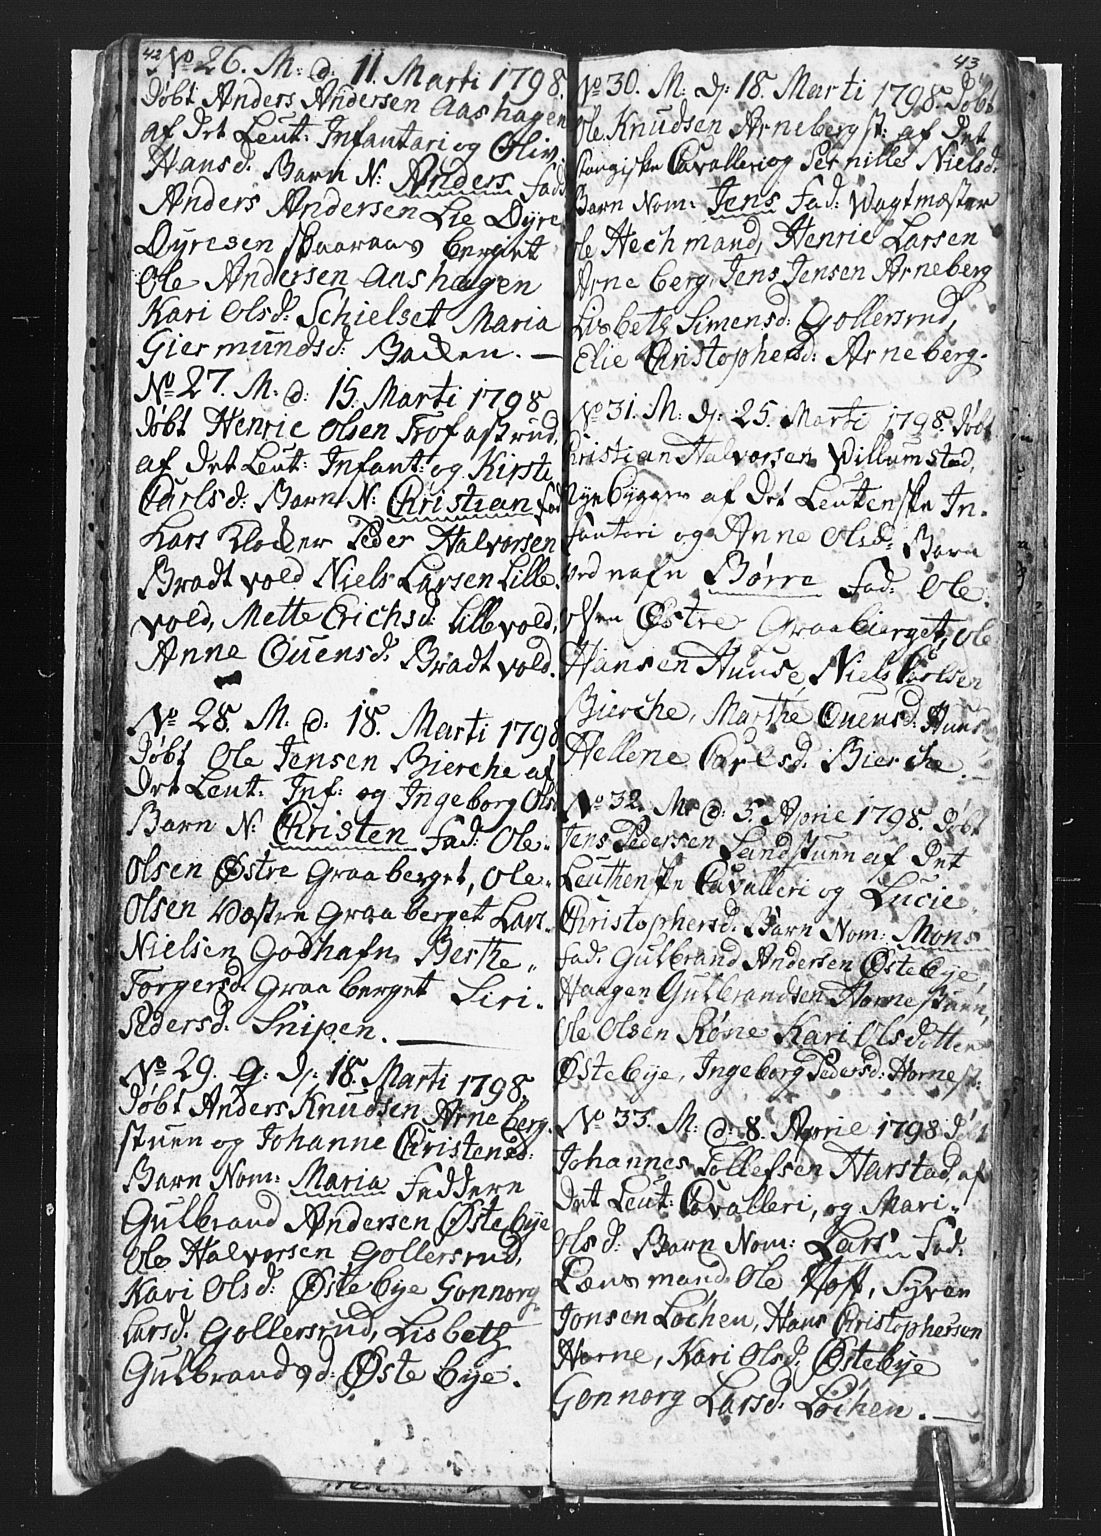 42
No 26. M: d: 11. Marti 1798.
döbt Anders Andersen Aashagen
af det Leut: Infantari og Oliv
Hansd: Barn N: Anders fadd
Anders Andersen Lie Dyre
Dyresen Skaaraas berget
Ole Andersen Aashagen
Kari Olsd: Schielset Maria
Giermundsd: Backen. —
No 27. M. d: 15. Marti 1798
döbt Henrie Olsen Trofastrud,
af det Leut: Infant: og Kirsti
Carlsd: Barn N: Christian fad
Lars Klocker Peder Halvorsen
Bradtvold Niels Larsen Lille
vold, Mette Erichsd: Lillevold,
Anne Ouensd: Bradtvold.
No 28. M. d: 18. Marti 1798
döbt Ole Jensen Bierche af
det Leut: Inf: og Ingeborg Ols
Barn N: Christen fad: Ole
Olsen Østre Graaberget, Ole
Olsen Væstre Graaberget Lars
Nielsen Godhafn Berthe
Torgersd: Graaberget Siri
Pedersd: Snipen. —
No 29. q: d: 18. Marti 1798,
döbt Anders Knudsen Arneberg
stuen og Johanne Christensd:
Barn Nom: Maria Faddern
Gulbrand Andersen Østebye
Ole Halvorsen Gollersrud,
Kari Olsd: Østebye Gonnorg
Larsd: Gollersrud, Lisbeth
Gulbrandsd: Østebye.
43
No 30. M: d: 18. Marti 1798. döbt
Ole Knudsen Arnebergst: af det
Stangiske Cavalleri og Pernille Nielsd:
Barn Nom: Jens Fad: Wagtmæster
Ole Hechmand, Henrie Larsen
Arneberg, Jens Jensen Arneberg
Lisbeth Simensd: Gollersrud,
Elie Christophersd: Arneberg.
No 31. M: d: 25. Marti 1798. döbt
Christian Halvorsen Villumstad,
Nyebygger af det Leutenske In-
fanteri og Anne Olsd: Barn
ved nafn Børre Fad: Ole
Olsen Østre Graaberget, Ole
Hansen Huuse, Niels Carlsen
Bierche, Marthe Ouensd: Huus
Hellene Carlsd: Bierche. —
No 32. M: d: 5. Aprie 1798. döbt
Jens Pedersen Sandstuen af det
Leuthenske Cavalleri og Lucie
Christophersd: Barn Nom: Mons
Fad: Gulbrand Andersen Østebye
Haagen Gulbrandsen Hornestuen,
Ole Olsen Röne Kari Olsdotter
Østebye, Ingeborg Pedersd: Hornest:
No 33. M: d: 8. Aprie 1798 döbt
Johannes Tollefsen Harstad, af
det Leut: Cavalleri, og Mari
Olsd: Barn Nom: Lars Fad:
Lænsmand Ole Hoff, Syver
Jonsen Löchen, Hans Christophersen
Horne, Kari Olsd: Østebye
Gonnorg Larsd: Löchen. —